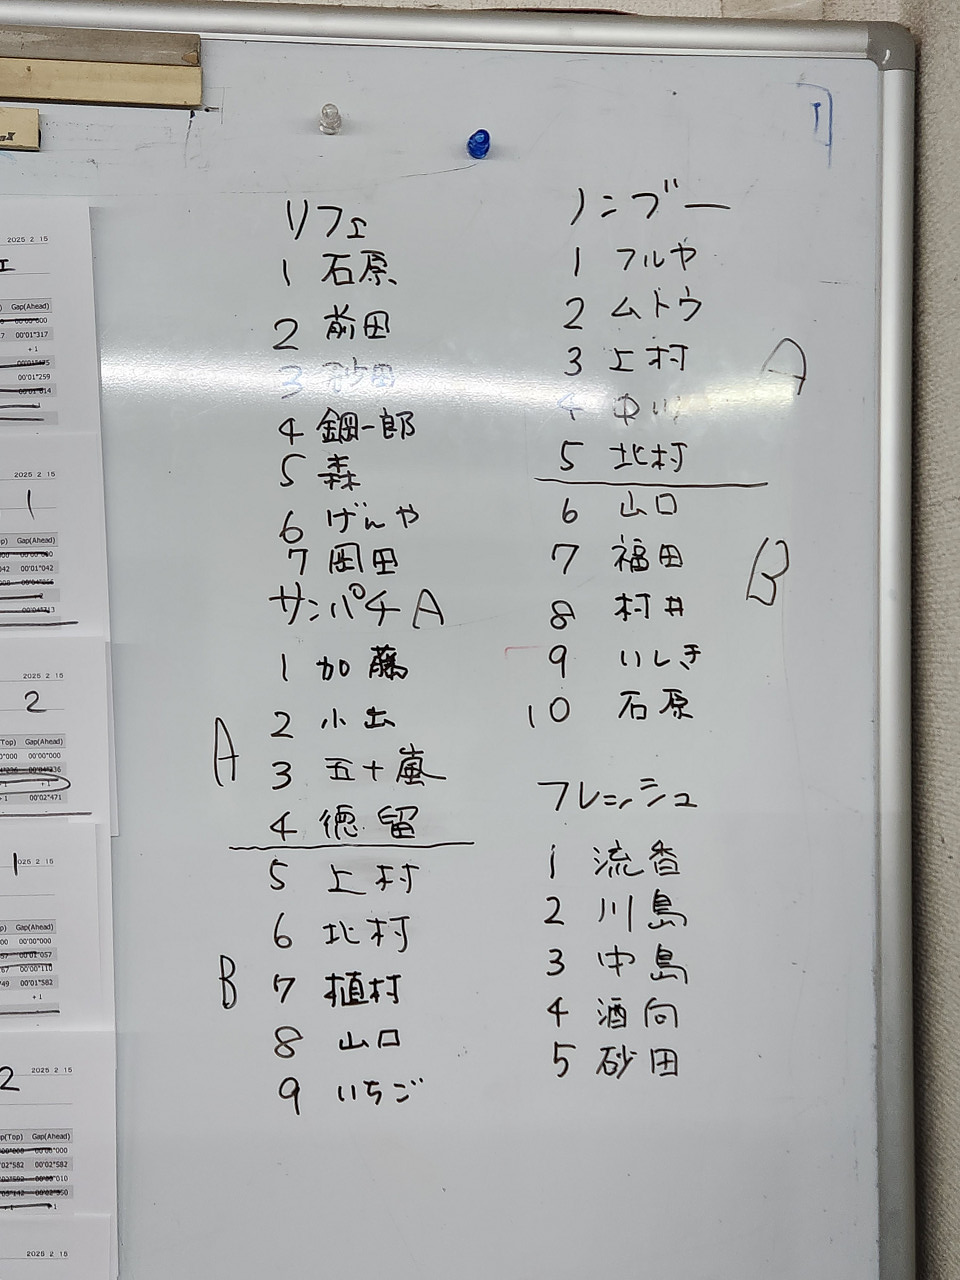 リフェ
1 石原
2 前田
3 砂田
4 鋼一郎
5 森
6 げんや
7 岡田
サンパチA
1 加藤
2 小出
3 五十嵐
4 徳留
A
5 上村
6 北村
7 植村
8 山口
9 いちご
B
ノンブー
1 フルヤ
2 ムトウ
3 上村
4 中川
5 北村
A
6 山口
7 福田
8 村井
9 いしき
10 石原
B
フレッシュ
1 流香
2 川島
3 中島
4 酒向
5 砂田
2025 2 15
Gap(Ahead)
00'00"600
7 00'01"317
+ 1
00'01"259
2025 2 15
1
Gap(Ahead)
042 00'01"042
2025 2 15
2
Top) Gap(Ahead)
0"000 00'00"000
+ 1
+ 1 00'02"471
025 2 15
1
p(Top) Gap(Ahead)
00 00'00"000
67 00'00"110
49 00'01"582
+ 1
2025 2 15
2
p(Top) Gap(Ahead)
02"582 00'02"582
2025 2 15